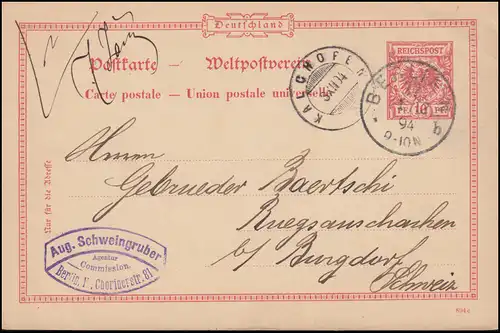 Deutschland
Postkarte — Weltpostverein
Carte postale — Union postale universelle
REICHSPOST
KALCHOFEN
BE
94
9-10N
Nur für die Adresse
Herren
Gebrueder Baertschi
Ruegsauschachen
b/ Burgdorf
Schweiz
Aug. Schweingruber
Agentur
Commission.
Berlin, N., Chorinerstr. 81